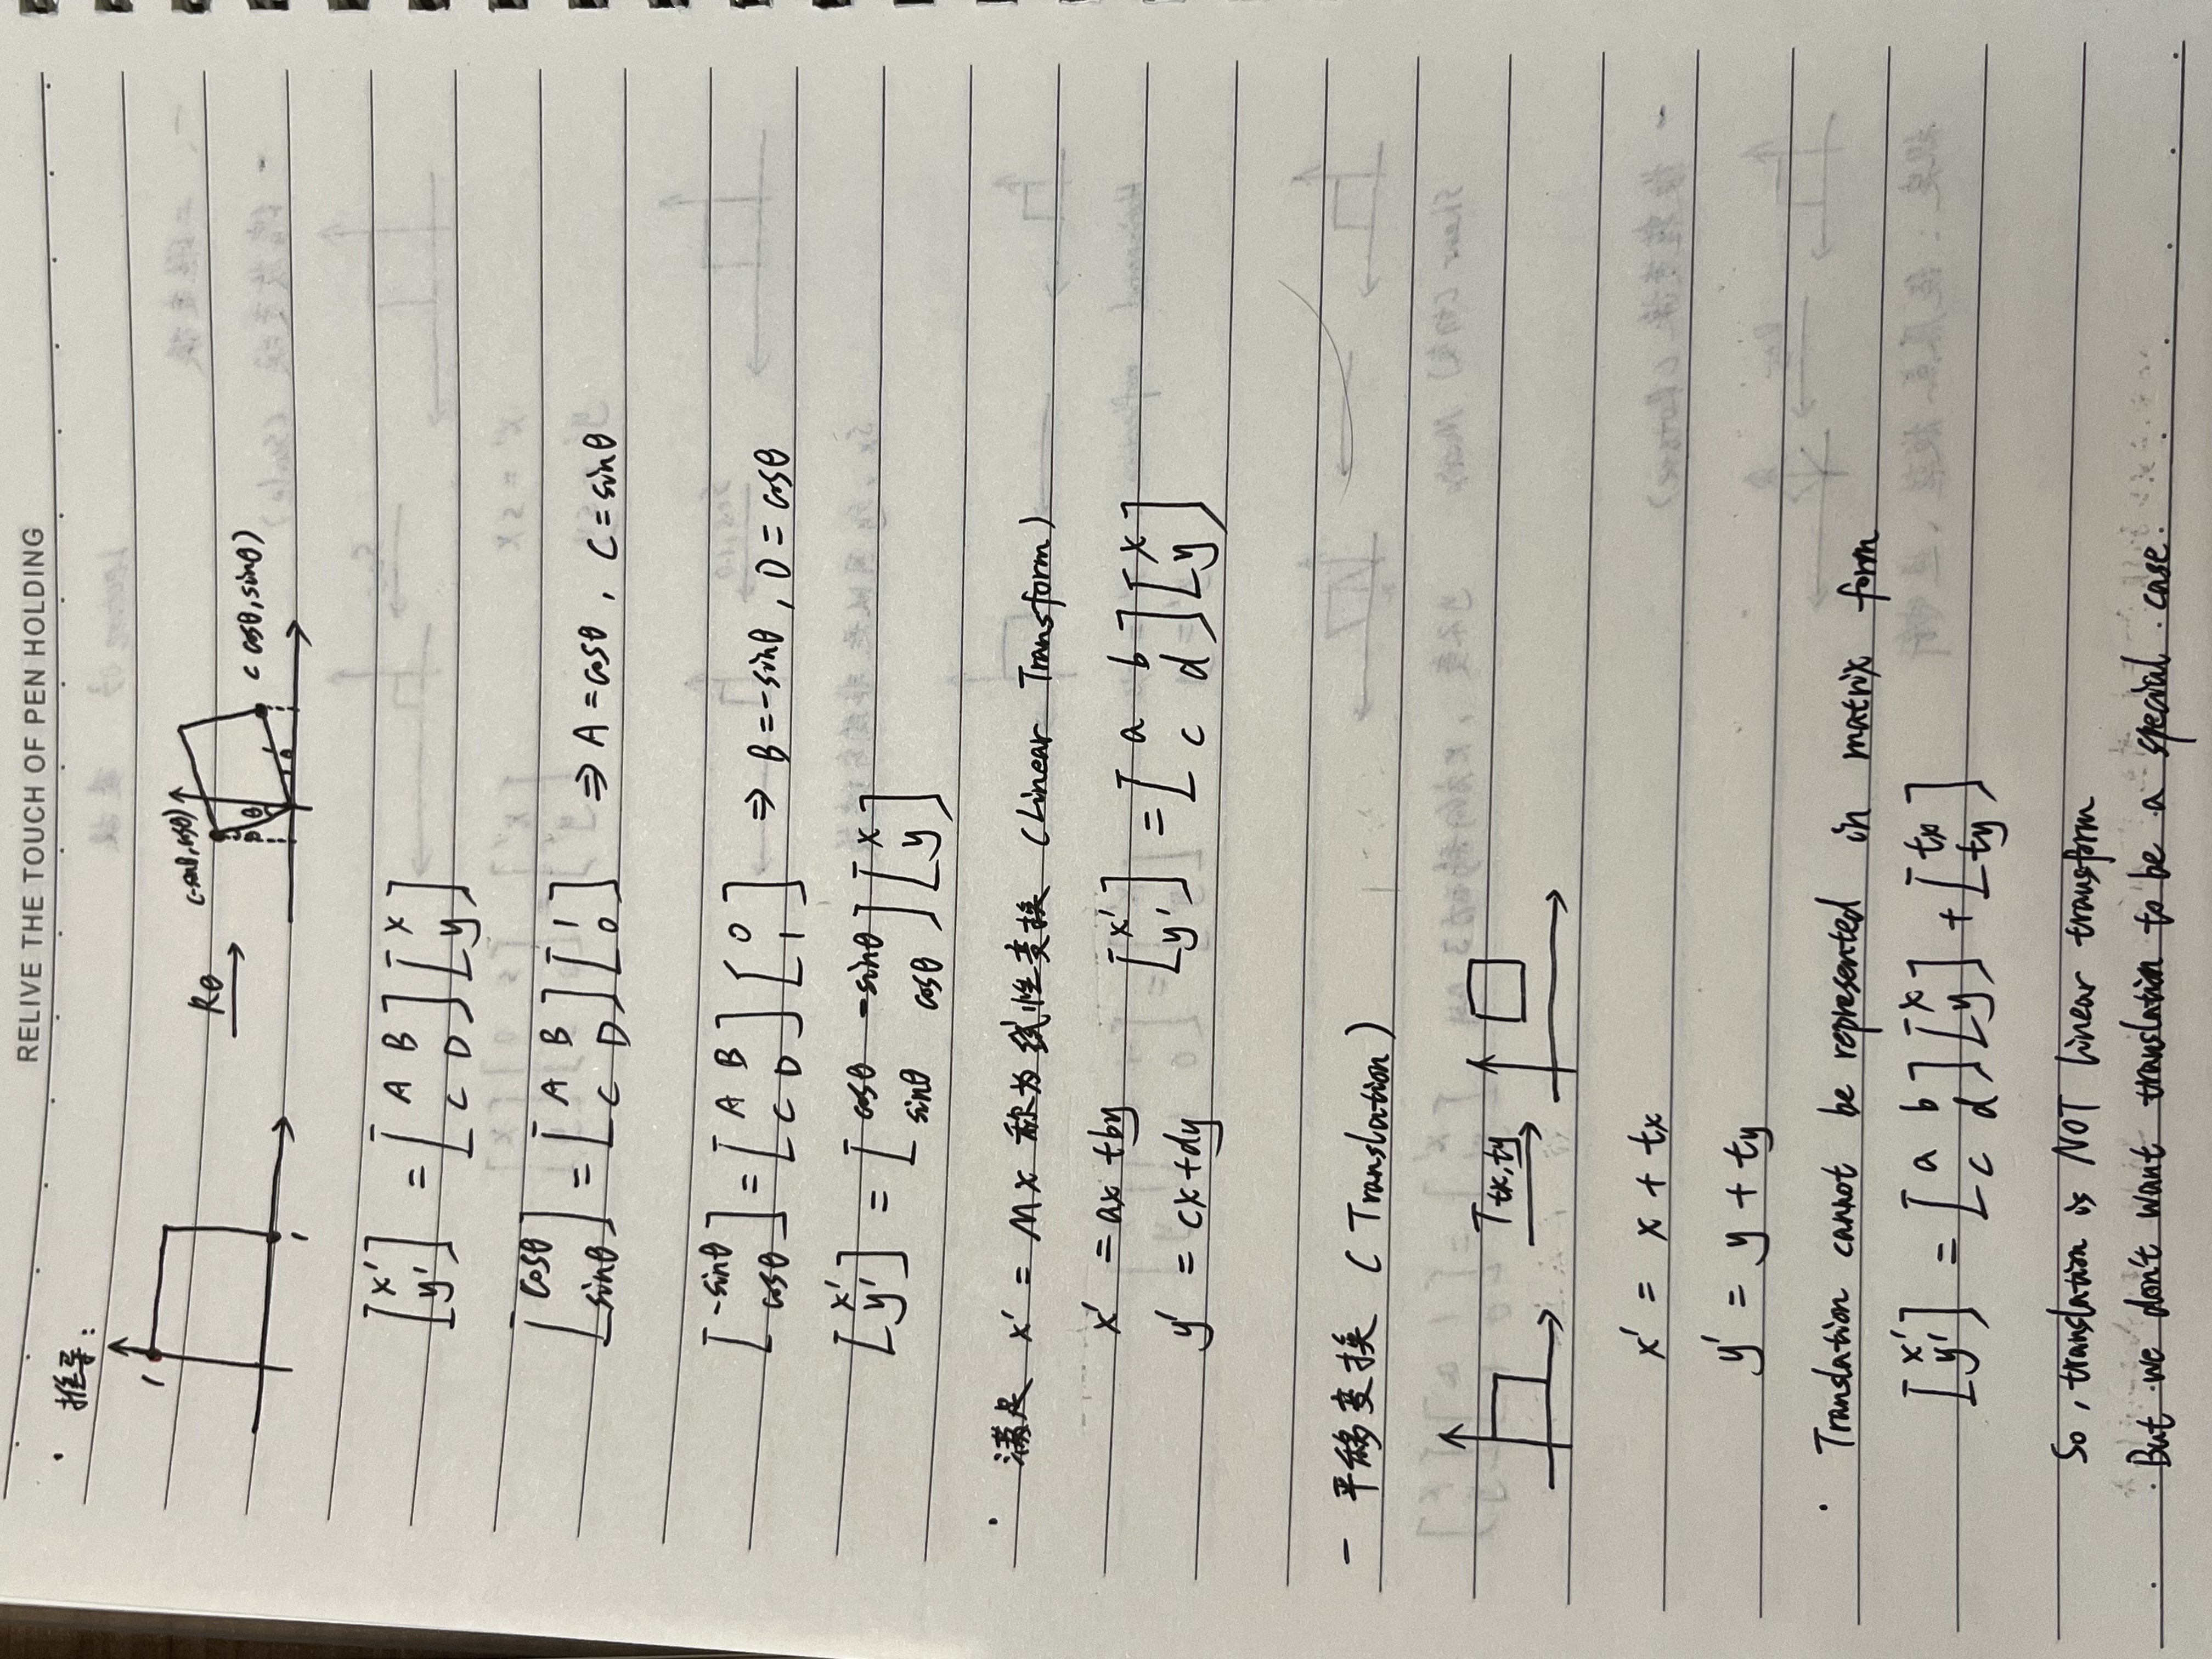 RELIVE THE TOUCH OF PEN HOLDING
· 推导:
1
1
Rθ
(-sinθ, cosθ)
θ
θ
1
θ
(cosθ, sinθ)
[x' y'] = [A B C D] [x y]
[cosθ sinθ] = [A B C D] [1 0] ⇒ A = cosθ, C = sinθ
[-sinθ cosθ] = [A B C D] [0 1] ⇒ B = -sinθ, D = cosθ
[x' y'] = [cosθ -sinθ sinθ cosθ] [x y]
· 满足 x' = Mx 称为线性变换 (Linear Transform)
x' = ax + by
y' = cx + dy
[x' y'] = [a b c d] [x y]
- 平移变换 (Translation)
T tx,ty
x' = x + tx
y' = y + ty
· Translation cannot be represented in matrix form
[x' y'] = [a b c d] [x y] + [tx ty]
So, translation is NOT linear transform
But we don't want translation to be a special case.